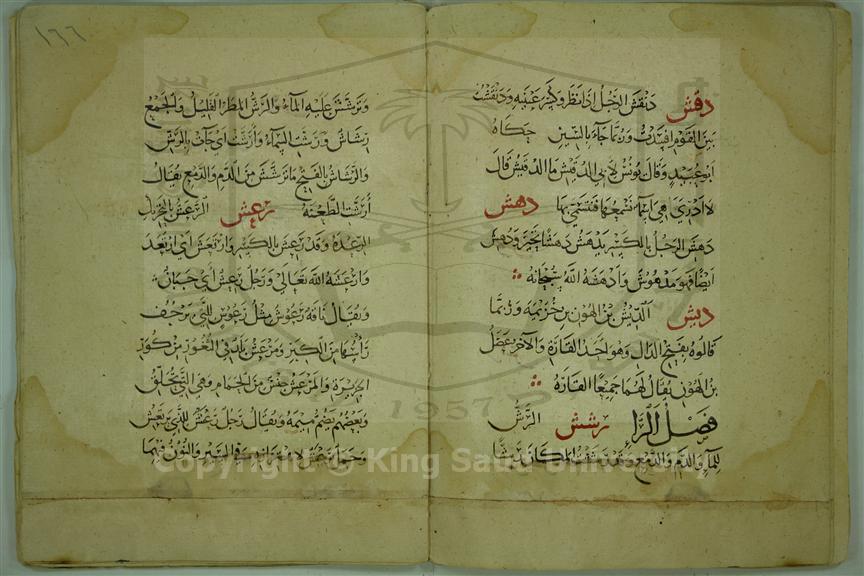 دقش دنقش الرجل اذا نظر وكسر عينيه ودنقشت
بين القوم افسدت وربما جاء بالسين حكاه
ابو عبيد وقال يونس لابي الدقيش ما الدقيش قال
لا ادري هي اسماء نسمعها فنتسمى بها دهش
دهش الرجل بالكسر يدهش دهشا تحير ودهش
ايضا فهو مدهوش وادهشه الله سبحانه
ديش الديش بن الهون بن خزيمة وربما
قالوه بفتح الدال وهو احد القارة والآخر عضل
بن الهون يقال لهما جميعا القارة
فصل الراء رشش الرش
للماء والدم والدمع وقد رششت المكان رشا
١٦٦
وترشش عليه الماء والرش المطر القليل والجمع
رشاش ورشت السماء وارشت اي جاءت بالرش
والرشاش بالفتح ما ترشش من الدم والدمع يقال
ارشت الطعنة رعش الرعش بالتحريك
الرعدة وقد رعش بالكسر وارتعش اي ارتعد
وارعشه الله تعالى ورجل رعش اي جبان
ويقال ناقة رعوش مثل رعوس للتي يرجف
رأسها من الكبر ومرعش بلد في الثغور من كور
الجزيرة والمرعش جنس من الحمام وهي التي تحلق
وبعضهم يضم ميمه ويقال رجل رعشن للذي يرتعش
وجمل رعشن لاهتزازه في السير والنون فيهما
Copyright © King Saud University
1957